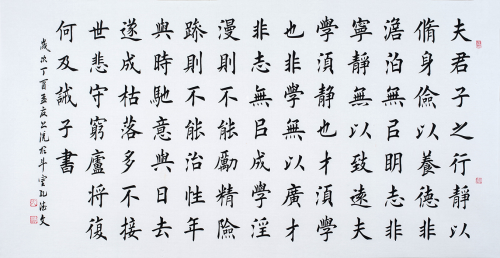 夫君子之行靜以
脩身儉以養德非
澹泊無㠯眀志非
寧靜無以致遠夫
學須靜也才須學
也非學無以廣才
非志無㠯成學淫
漫則不能勵精險
躁則不能治性年
與時馳意與日去
遂成枯落多不接
世悲守窮廬將復
何及誡子書
歲次丁酉孟夏上浣於斗室